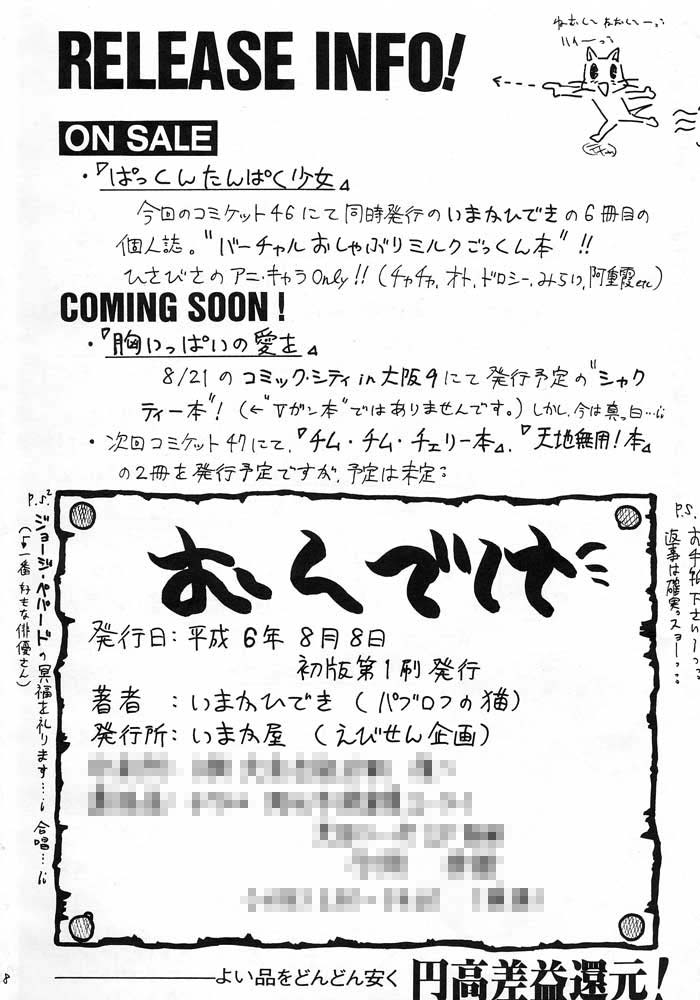 RELEASE INFO!
ON SALE
・『ぱっくんたんぱく少女』
今回のコミケット46にて同時発行のいまかひできの6冊目の
個人誌。"バーチャルおしゃぶりミルクごっくん本"!!
ひさびさのアニ・キャラOnly!!(チャチャ,オト,ドロシー,みらい,阿重霞etc)
COMING SOON!
・『胸いっぱいの愛を』
8/21のコミック・シティin大阪9にて発行予定の"シャク
ティー本"!(←"Vガン本"ではありませんです。)しかし、今は真っ白…
・次回コミケット47にて、『チム・チム・チェリー本』、『天地無用!本』
の2冊を発行予定ですが、予定は未定
P.S.
お手紙下さいーっ
返事は確実っスョーっ
P.S.²
ジョージ・ペパードの冥福を礼ります… 合唱…
(一番好きな俳優さん)
おくづけ
発行日:平成6年8月8日
初版第1刷発行
著者:いまかひでき(パブロフの猫)
発行所:いまか屋(えびせん企画)
よい品をどんどん安く 円高差益還元!
8